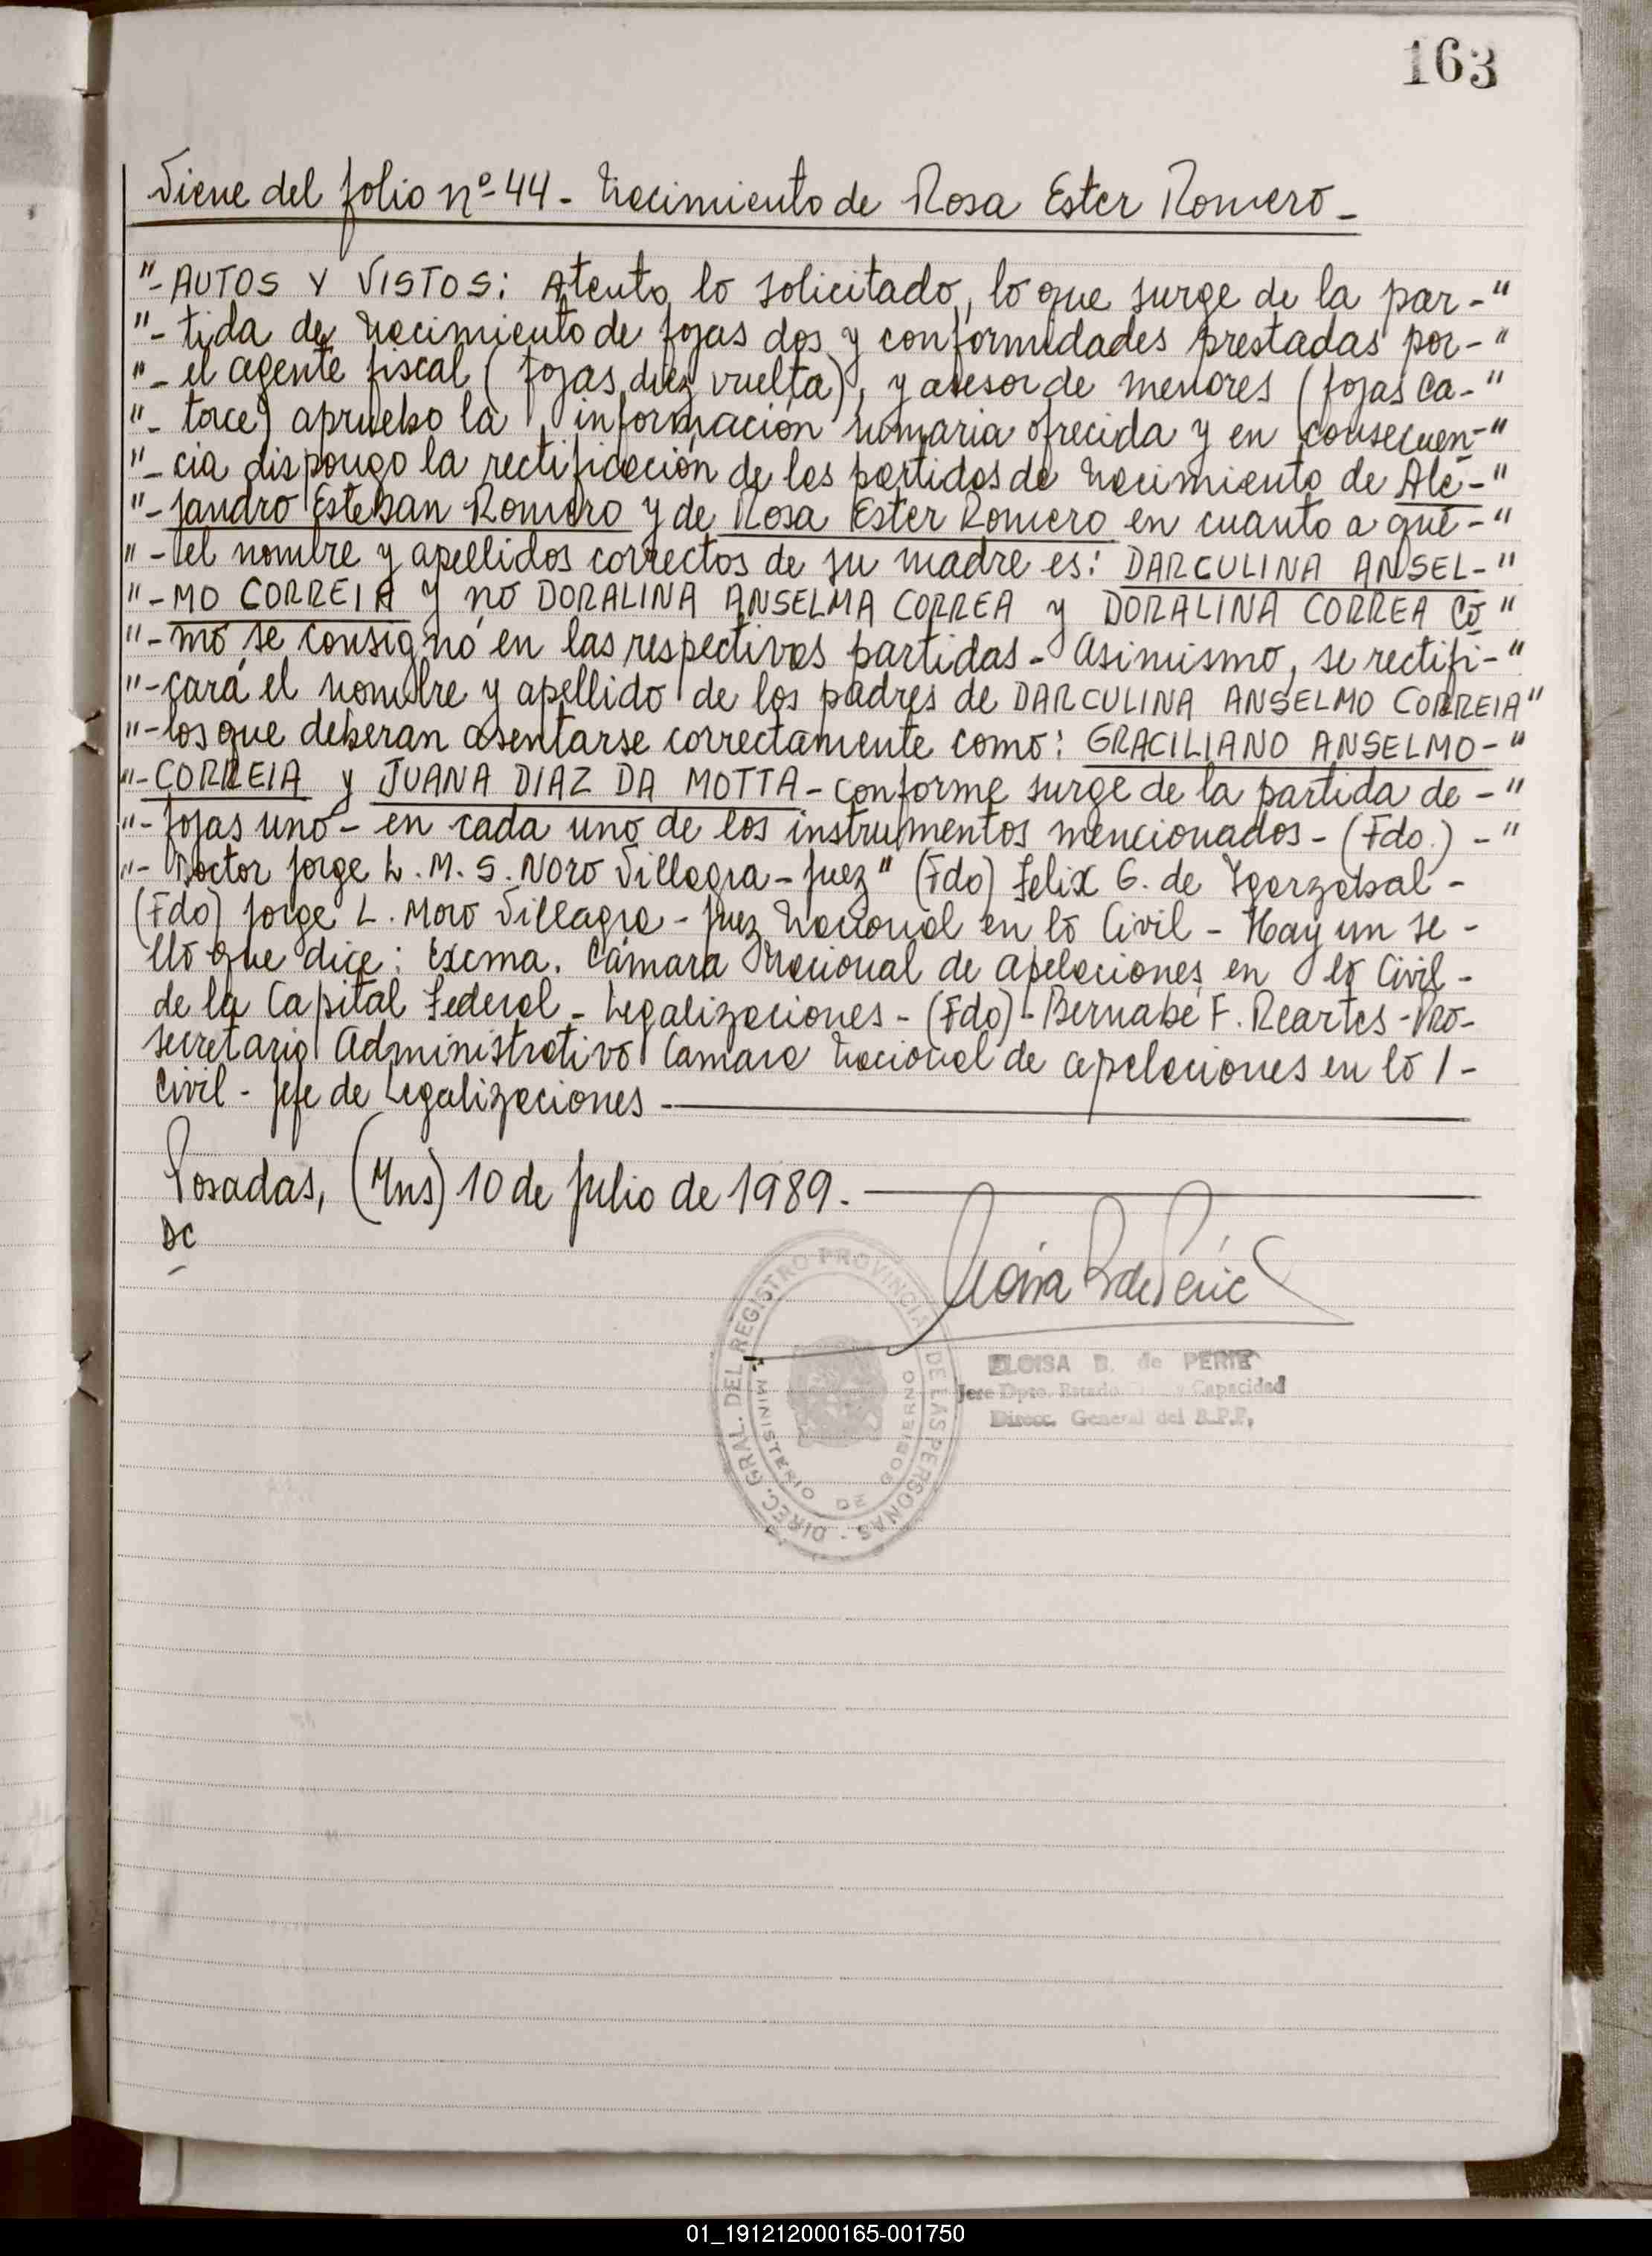 163
Viene del folio nº 44 - Nacimiento de Rosa Ester Romero -
"- AUTOS Y VISTOS: Atento lo solicitado, lo que surge de la par - "
"- tida de nacimiento de fojas dos y conformidades prestadas por - "
"- el agente fiscal (fojas diez vuelta), y asesor de menores (fojas ca - "
"- torce) apruebo la información sumaria ofrecida y en consecuen - "
"- cia dispongo la rectificación de las partidas de nacimiento de Ale - "
"- jandro Esteban Romero y de Rosa Ester Romero en cuanto a que - "
"- el nombre y apellidos correctos de su madre es: DARCULINA ANSEL - "
"- MO CORREIA y no DORALINA ANSELMA CORREA y DORALINA CORREA Co "
"- mo se consignó en las respectivas partidas - Asimismo, se rectifi - "
"- cará el nombre y apellido de los padres de DARCULINA ANSELMO CORREIA "
"- los que deberan asentarse correctamente como: GRACILIANO ANSELMO - "
"- CORREIA y JUANA DIAZ DA MOTTA - conforme surge de la partida de - "
"- fojas uno - en cada uno de los instrumentos mencionados - (Fdo.) - "
"- Doctor Jorge L. M. S. Noro Villagra - Juez " (Fdo) Felix G. de Ygarzabal -
(Fdo) Jorge L. Moro Villagra - Juez Nacional en lo Civil - Hay un se -
llo que dice: Excma. Cámara Nacional de apelaciones en lo Civil -
de la Capital Federal - Legalizaciones - (Fdo) - Bernabé F. Reartes - Pro -
secretario Administrativo Camara Nacional de apelaciones en lo / -
Civil - Jefe de Legalizaciones -
Posadas, (Mns) 10 de Julio de 1989. -
DC
DIREC. GRAL. DEL REGISTRO PROVINCIAL DE LAS PERSONAS -
MINISTERIO DE GOBIERNO
ELOISA B. de PERIE
Jefe Dpto. Estado y Capacidad
Direcc. General del R.P.P.
01_191212000165-001750